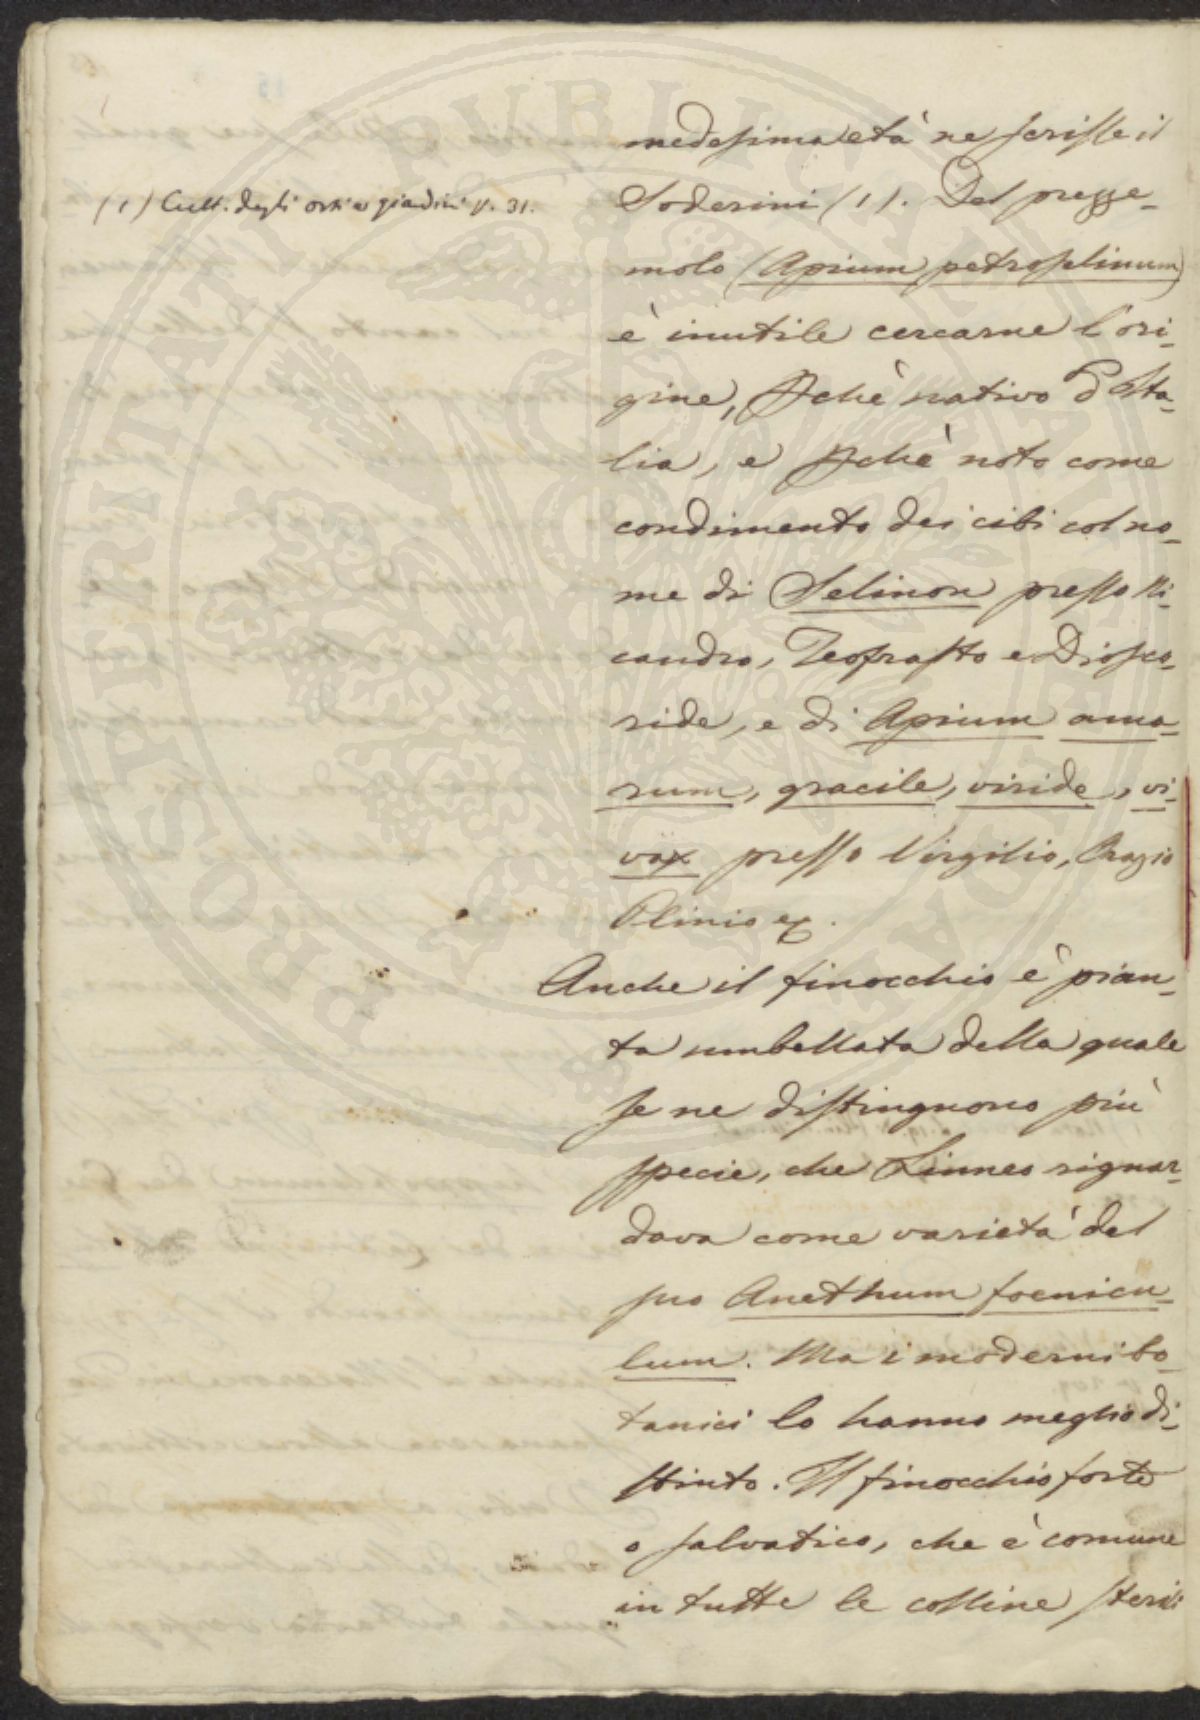 medesima età ne scrisse il
(1) Cult. degli orti e giardini p. 31.
Soderini (1). Del prezze-
molo (Apium petroselinum)
è inutile cercarne l'ori-
gine, pchè nativo d'Ita-
lia, e pchè noto come
condimento dei cibi col no-
me di Selinon presso Ni-
candro, Teofrasto e Diosco-
ride, e di Apium ama-
rum, gracile, viride, vi-
vax presso Virgilio, Orazio
Plinio ec.
Anche il finocchio è pian-
ta umbellata della quale
se ne distinguono più
specie, che Linneo riguar-
dava come varietà del
suo Anethum foenicu-
lum. Ma i moderni bo-
tanici lo hanno meglio di-
stinto. Il finocchio forte
o salvatico, che è comune
in tutte le colline sterili
PROSPERITATI PUBLICAE AUGENDAE